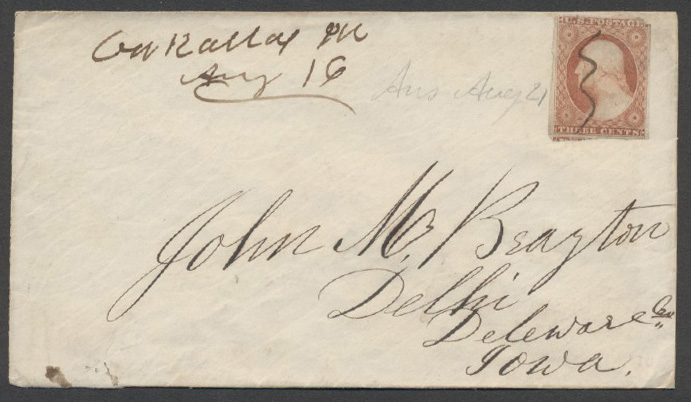 Aug 16
Ans Aug 21
U.S. POSTAGE
THREE CENTS
John M. Brayton
Delhi
Deleware Co.
Iowa.